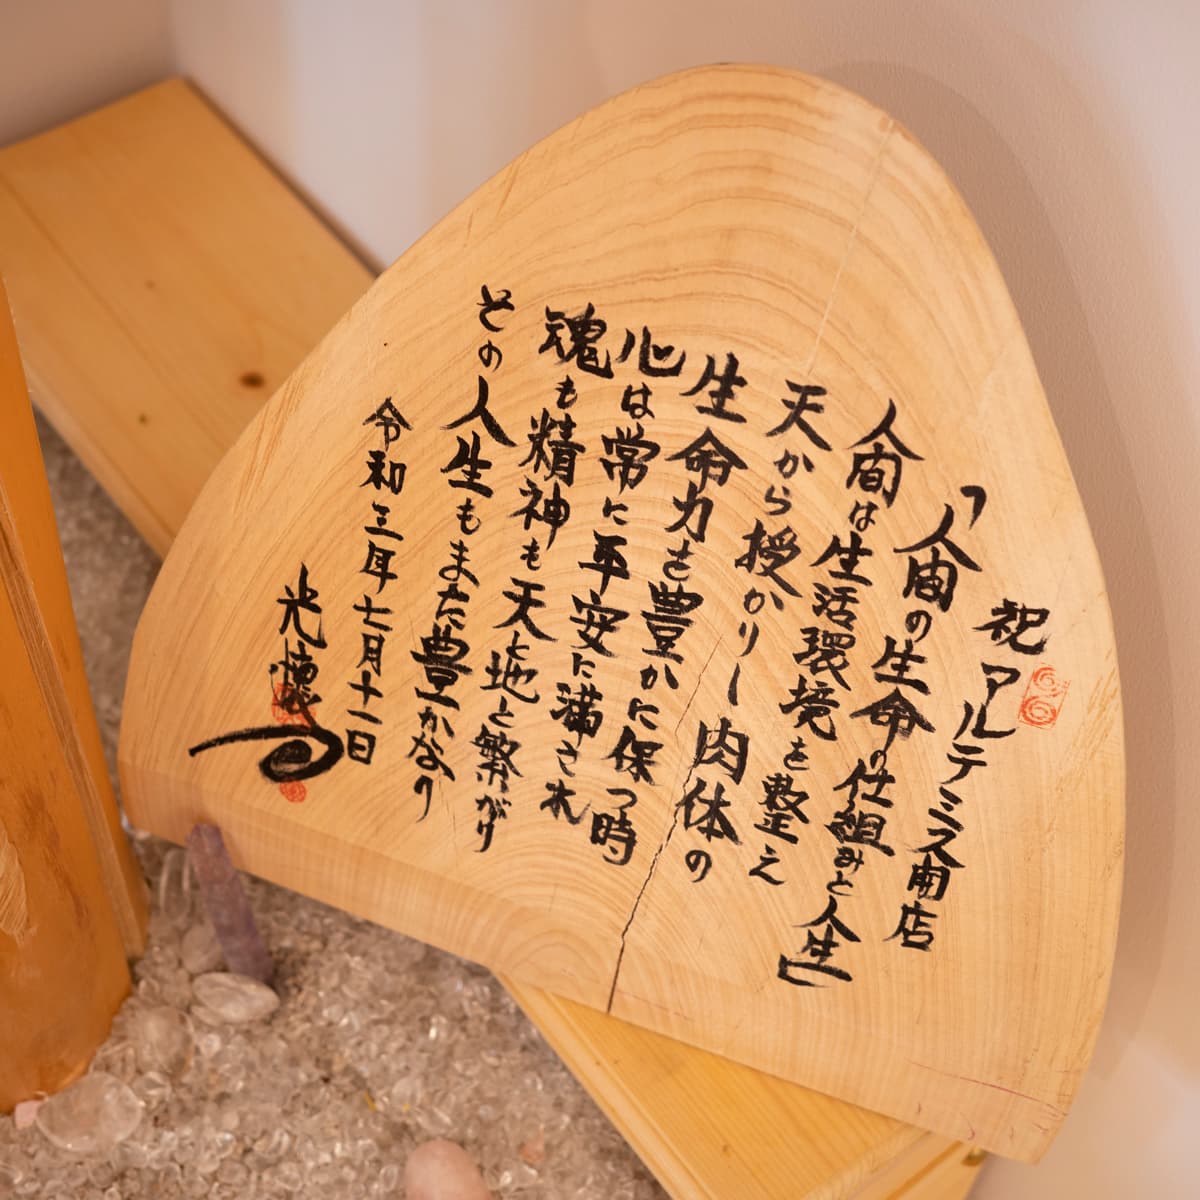 祝アルテミス開店
「人間の生命の仕組みと人生」
人間は生活環境を整え
天から授かりし肉体の
生命力を豊かに保つ時
心は常に平安に満され
魂も精神も天と地と繁がり
その人生もまた豊かなり
令和三年七月十一日
光